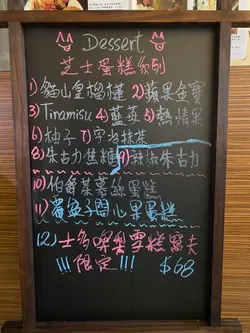 Dessert
芝士蛋糕系列
1)貓山皇榴槤 2)蘋果金寶
3)Tiramisu 4)藍莓 5)熱情果
6)柚子 7)宇治抹茶
8)朱古力焦糖 9)辣椒朱古力
10)伯爵茶蛋糕
11)覆盆子開心果蛋糕
12)士多啤梨雪糕窩夫
!!!限定!!! $68